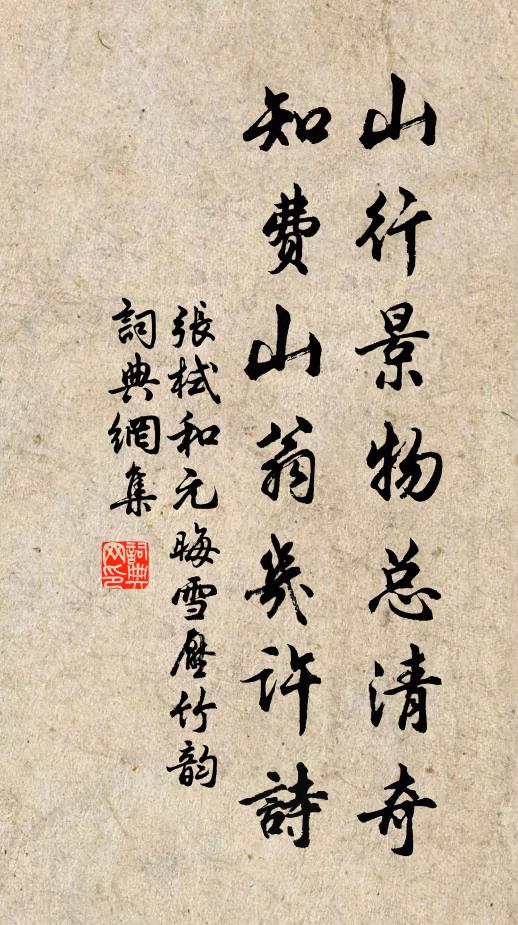 山行景物总清奇
知費山翁幾許詩
張栻和元晦雪壓竹韵
詞典網集
詞典网印